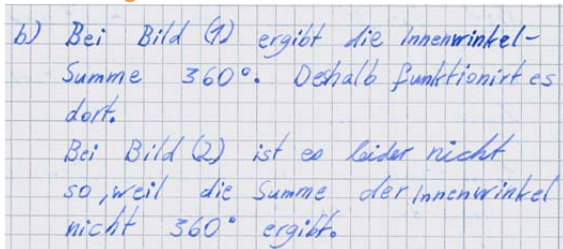 b) Bei Bild (1) ergibt die Innenwinkel-
Summe 360°. Deshalb funktionirt es
dort.
Bei Bild (2) ist es leider nicht
so, weil die Summe der Innenwinkel
nicht 360° ergibt.